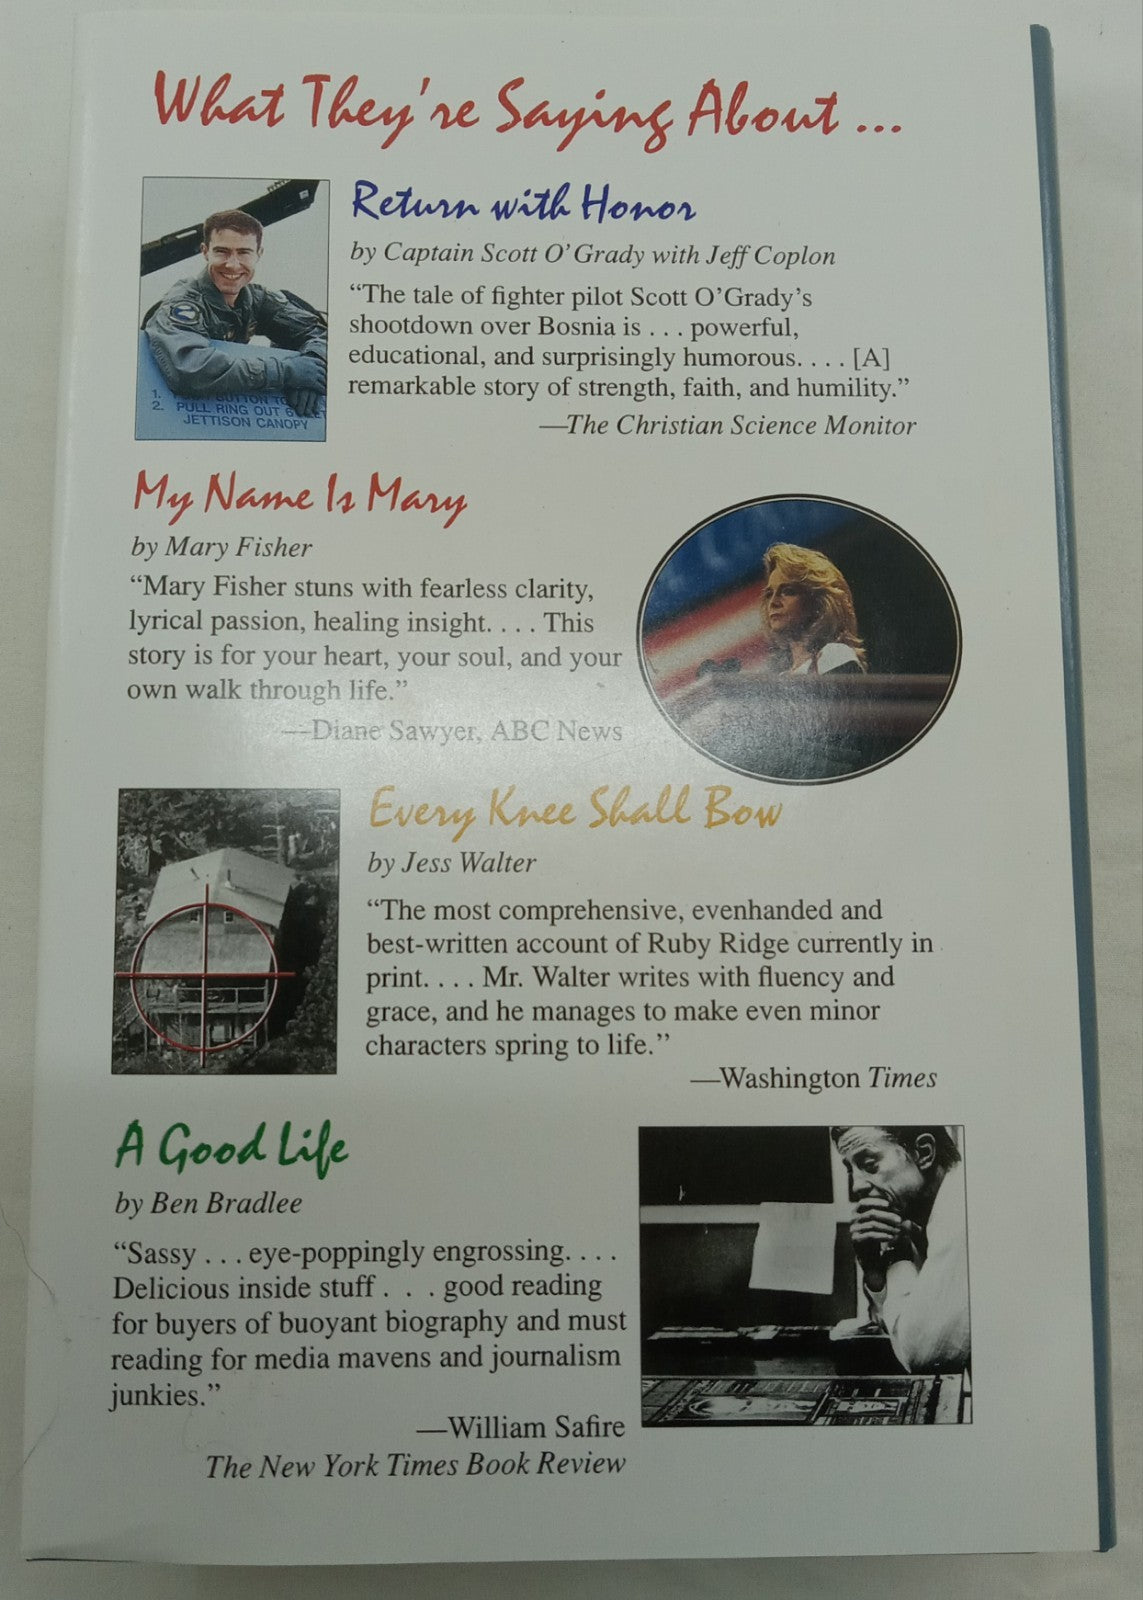 What They're Saying About ...
Return with Honor
by Captain Scott O'Grady with Jeff Coplon
“The tale of fighter pilot Scott O'Grady's
shootdown over Bosnia is . . . powerful,
educational, and surprisingly humorous. . . . [A]
remarkable story of strength, faith, and humility.”
—The Christian Science Monitor
1.
2. PULL RING OUT 6
JETTISON CANOPY
My Name Is Mary
by Mary Fisher
“Mary Fisher stuns with fearless clarity,
lyrical passion, healing insight. . . . This
story is for your heart, your soul, and your
own walk through life.”
—Diane Sawyer, ABC News
Every Knee Shall Bow
by Jess Walter
“The most comprehensive, evenhanded and
best-written account of Ruby Ridge currently in
print. . . . Mr. Walter writes with fluency and
grace, and he manages to make even minor
characters spring to life.”
—Washington Times
A Good Life
by Ben Bradlee
“Sassy . . . eye-poppingly engrossing. . . .
Delicious inside stuff . . . good reading
for buyers of buoyant biography and must
reading for media mavens and journalism
junkies.”
—William Safire
The New York Times Book Review